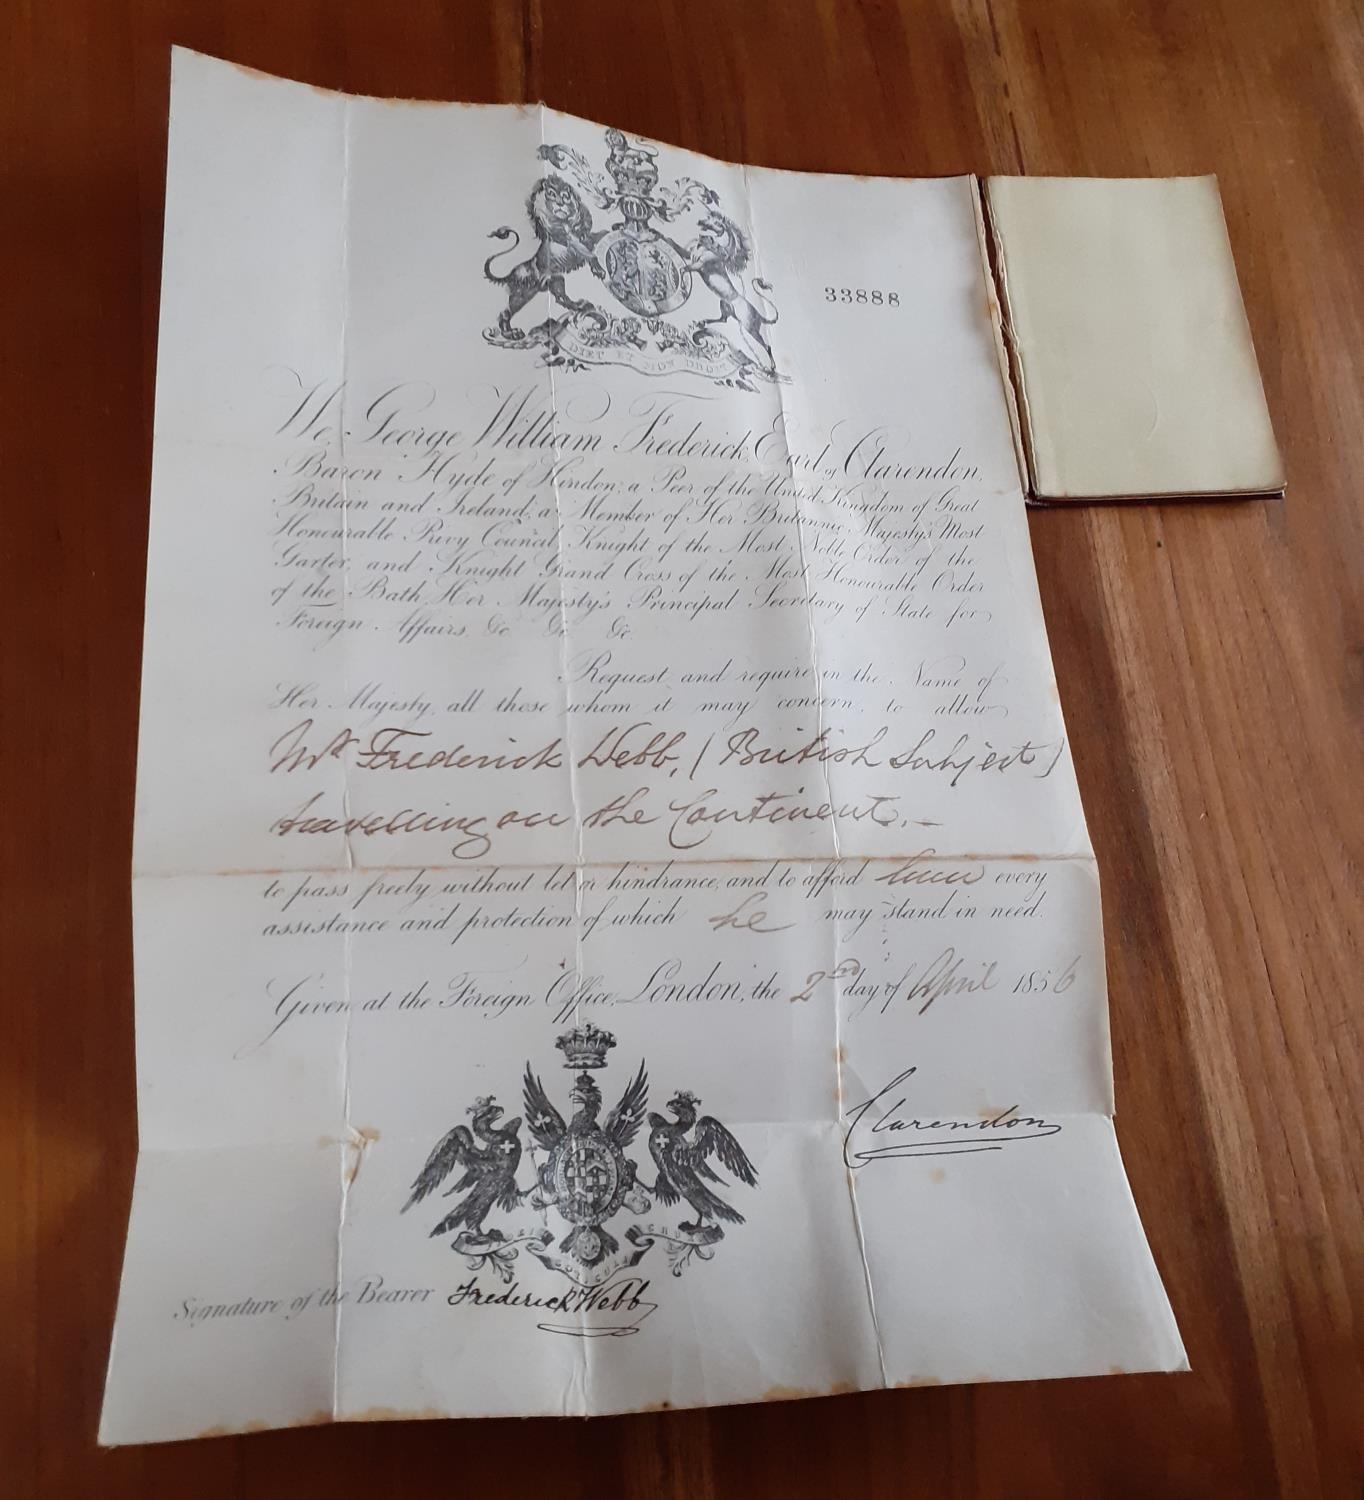 33888
DIEU ET MON DROIT
We, George William Frederick, Earl of Clarendon,
Baron Hyde of Hindon, a Peer of the United Kingdom of Great
Britain and Ireland, a Member of Her Britannic Majesty's Most
Honourable Privy Council, Knight of the Most Noble Order of the
Garter, and Knight Grand Cross of the Most Honourable Order
of the Bath, Her Majesty's Principal Secretary of State for
Foreign Affairs, &c. &c. &c.
Request and require in the Name of
Her Majesty, all those whom it may concern, to allow
Mr. Frederick Webb, (British Subject)
travelling on the Continent. —
to pass freely without let or hindrance, and to afford him every
assistance and protection of which he may stand in need.
Given at the Foreign Office, London, the 2nd day of April 1856
Clarendon
Signature of the Bearer Frederick Webb